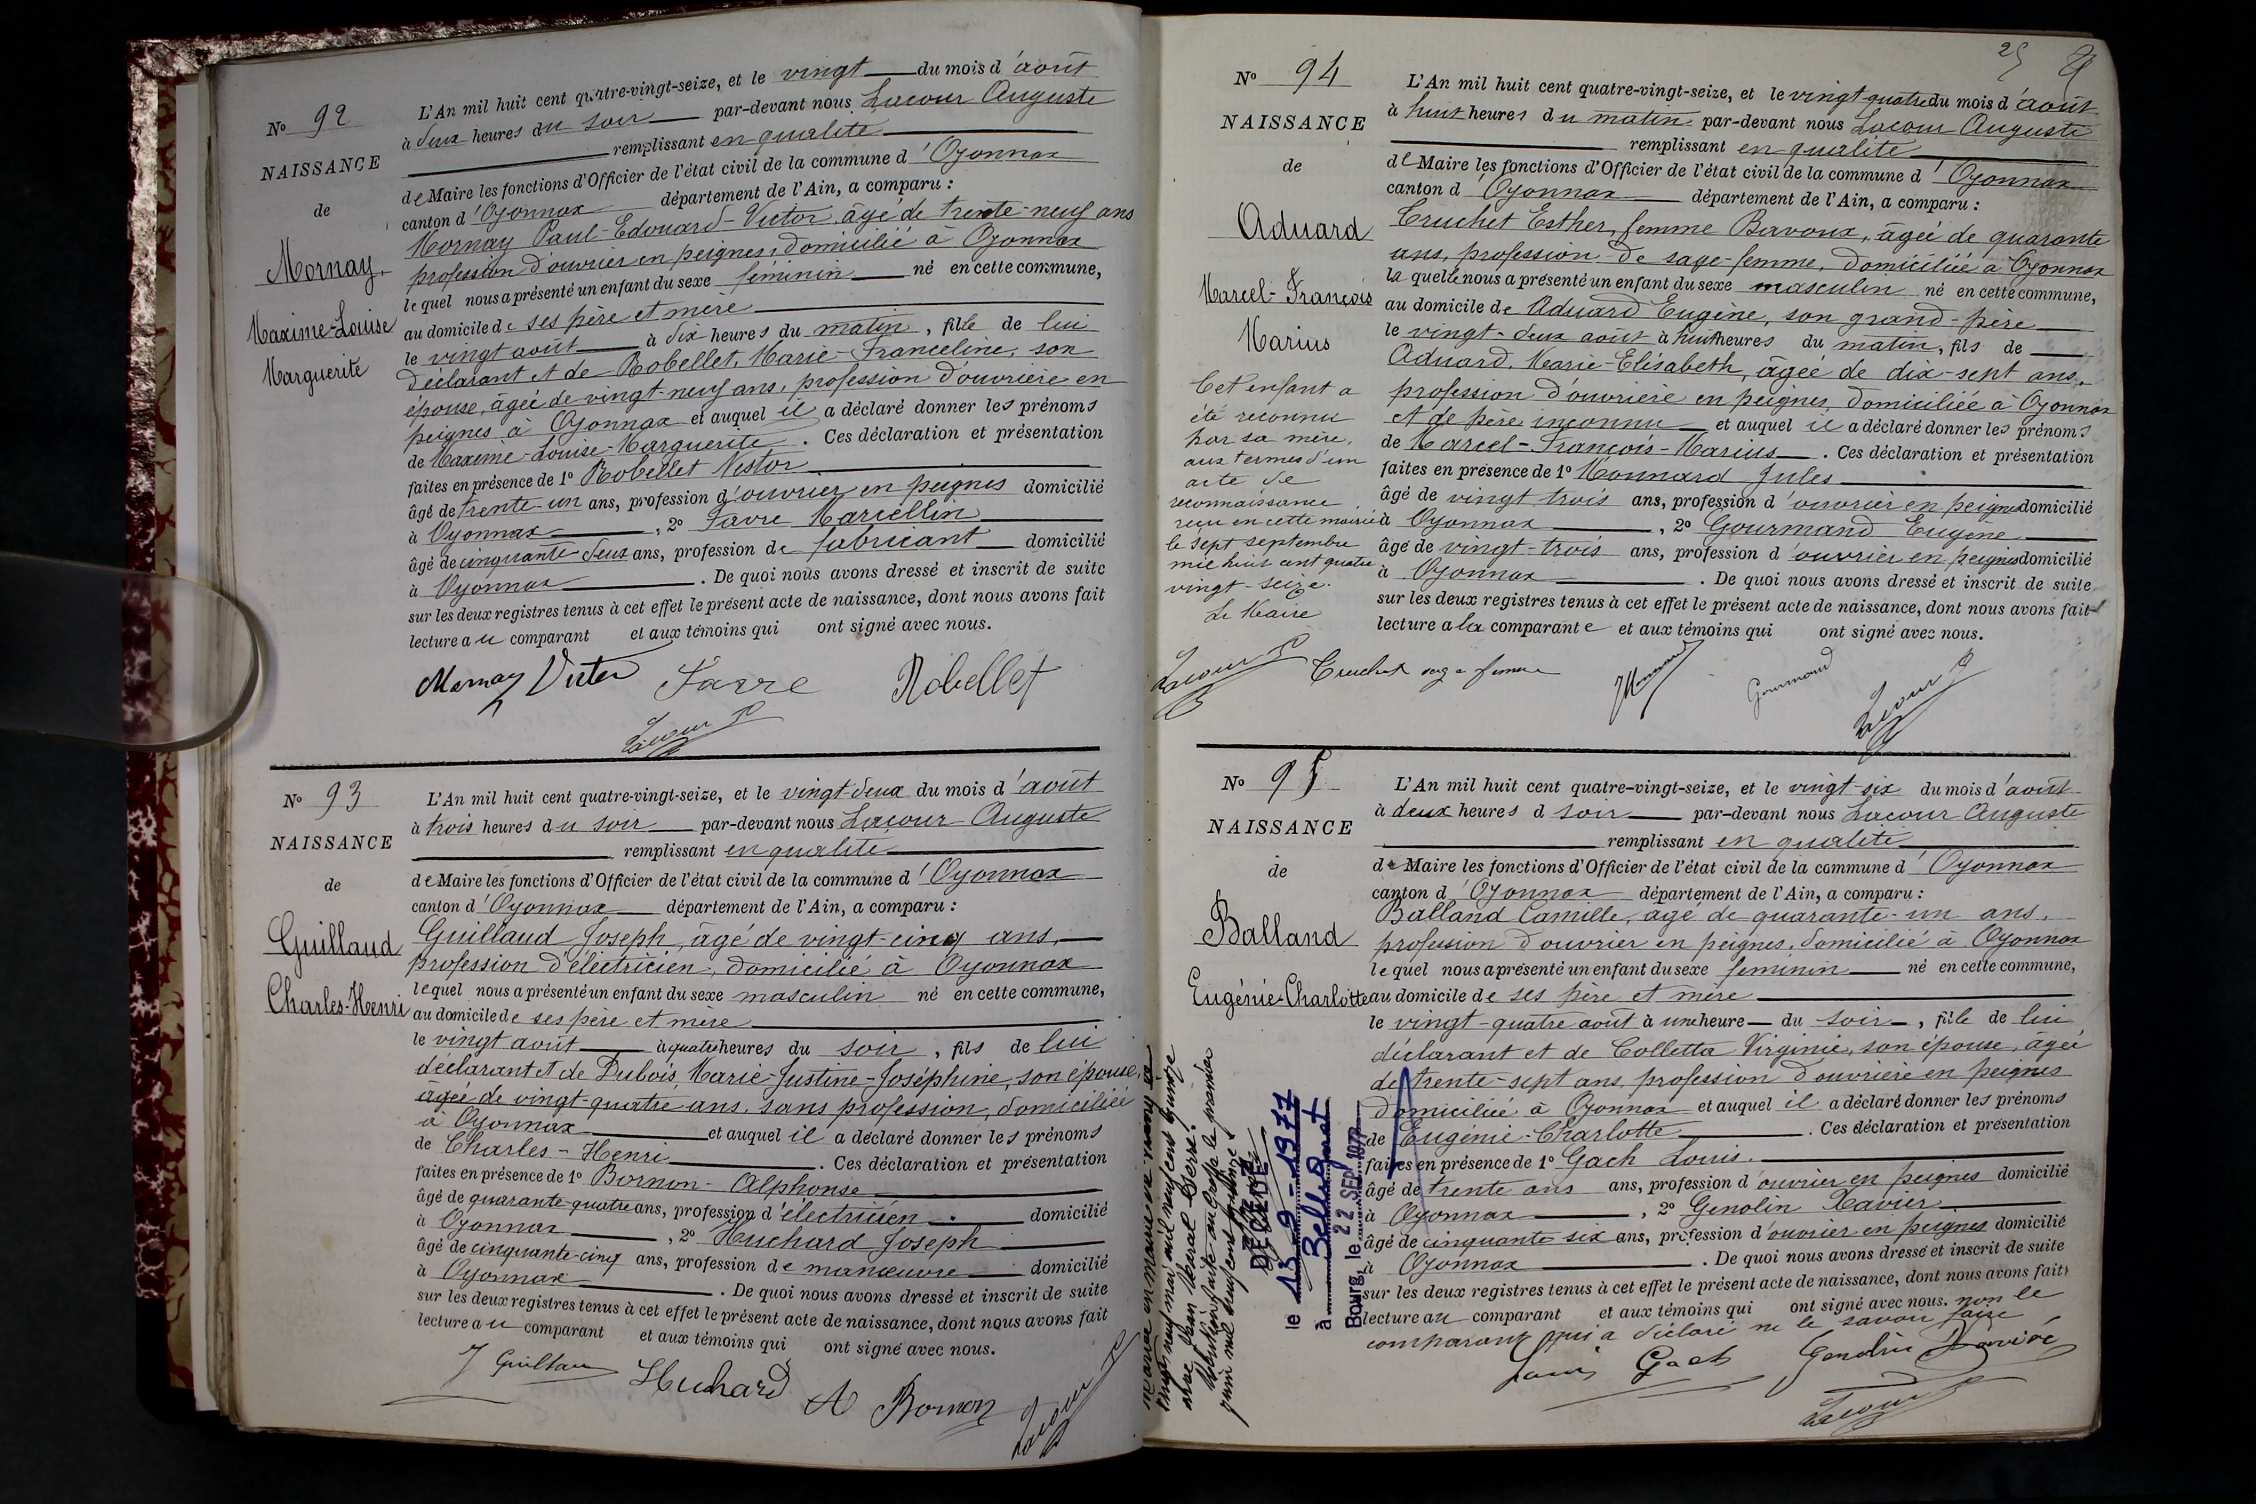 N° 92
NAISSANCE
de
Mornay
Maxime-Louise
Marguerite
L'An mil huit cent quatre-vingt-seize, et le vingt du mois d'août
à deux heures du soir par-devant nous Lacour Auguste
remplissant en qualité
de Maire les fonctions d'Officier de l'état civil de la commune d'Oyonnax
canton d'Oyonnax département de l'Ain, a comparu :
Mornay Paul-Edouard-Victor, âgé de trente-neuf ans
profession d'ouvrier en peignes, domicilié à Oyonnax
lequel nous a présenté un enfant du sexe féminin né en cette commune,
au domicile de ses père et mère
le vingt août à dix heures du matin, fille de lui
déclarant et de Robellet, Marie-Franceline, son
épouse, âgée de vingt-neuf ans, profession d'ouvrière en
peignes à Oyonnax et auquel il a déclaré donner les prénoms
de Maxime-Louise-Marguerite. Ces déclaration et présentation
faites en présence de 1° Robellet Nestor
âgé de trente-un ans, profession d'ouvrier en peignes domicilié
à Oyonnax, 2° Favre Marcellin
âgé de cinquante deux ans, profession de fabricant domicilié
à Oyonnax. De quoi nous avons dressé et inscrit de suite
sur les deux registres tenus à cet effet le présent acte de naissance, dont nous avons fait
lecture au comparant et aux témoins qui ont signé avec nous.
Mornay Victor Favre Robellet
Lacour
N° 93
NAISSANCE
de
Guillaud
Charles-Henri
L'An mil huit cent quatre-vingt-seize, et le vingt-deux du mois d'août
à trois heures du soir par-devant nous Lacour Auguste
remplissant en qualité
de Maire les fonctions d'Officier de l'état civil de la commune d'Oyonnax
canton d'Oyonnax département de l'Ain, a comparu :
Guillaud Joseph, âgé de vingt-cinq ans,
profession d'électricien, domicilié à Oyonnax
lequel nous a présenté un enfant du sexe masculin né en cette commune,
au domicile de ses père et mère
le vingt août à quatre heures du soir, fils de lui
déclarant et de Dubois, Marie-Justine-Joséphine, son épouse,
âgée de vingt-quatre ans, sans profession, domiciliée
à Oyonnax et auquel il a déclaré donner les prénoms
de Charles-Henri. Ces déclaration et présentation
faites en présence de 1° Bornon Alphonse
âgé de quarante-quatre ans, profession d'électricien domicilié
à Oyonnax, 2° Huchard Joseph
âgé de cinquante-cinq ans, profession de manœuvre domicilié
à Oyonnax. De quoi nous avons dressé et inscrit de suite
sur les deux registres tenus à cet effet le présent acte de naissance, dont nous avons fait
lecture au comparant et aux témoins qui ont signé avec nous.
J Guillaud Huchard A Bornon Lacour
25
N° 94
NAISSANCE
de
Aduard
Marcel-François
Marius
Cet enfant a
été reconnu
par sa mère,
aux termes d'un
acte de
reconnaissance
reçu en cette mairie
le sept septembre
mil huit cent quatre
vingt-seize.
Le Maire
Lacour
L'An mil huit cent quatre-vingt-seize, et le vingt quatre du mois d'août
à huit heures du matin par-devant nous Lacour Auguste
remplissant en qualité
de Maire les fonctions d'Officier de l'état civil de la commune d'Oyonnax
canton d'Oyonnax département de l'Ain, a comparu :
Cruchet Esther, femme Bavoux, âgée de quarante
ans, profession de sage-femme, domiciliée à Oyonnax
laquelle nous a présenté un enfant du sexe masculin né en cette commune,
au domicile de Aduard Eugène, son grand-père
le vingt-deux août à huit heures du matin, fils de
Aduard, Marie-Elisabeth, âgée de dix-sept ans,
profession d'ouvrière en peignes domiciliée à Oyonnax
et de père inconnu et auquel il a déclaré donner les prénoms
de Marcel-François-Marius. Ces déclaration et présentation
faites en présence de 1° Monnard Jules
âgé de vingt trois ans, profession d'ouvrier en peignes domicilié
à Oyonnax, 2° Gourmand Eugène
âgé de vingt-trois ans, profession d'ouvrier en peignes domicilié
à Oyonnax. De quoi nous avons dressé et inscrit de suite
sur les deux registres tenus à cet effet le présent acte de naissance, dont nous avons fait
lecture a la comparante et aux témoins qui ont signé avec nous.
Cruchet sage femme J Monnard Gourmand Lacour
N° 95
NAISSANCE
de
Balland
Eugénie-Charlotte
L'An mil huit cent quatre-vingt-seize, et le vingt-six du mois d'août
à deux heures d soir par-devant nous Lacour Auguste
remplissant en qualité
de Maire les fonctions d'Officier de l'état civil de la commune d'Oyonnax
canton d'Oyonnax département de l'Ain, a comparu :
Balland Camille, âgé de quarante-un ans,
profession d'ouvrier en peignes, domicilié à Oyonnax
lequel nous a présenté un enfant du sexe féminin né en cette commune,
au domicile de ses père et mère
le vingt-quatre août à une heure du soir, fille de lui
déclarant et de Colletta Virginie, son épouse, âgée
de trente-sept ans, profession d'ouvrière en peignes
domiciliée à Oyonnax et auquel il a déclaré donner les prénoms
de Eugénie-Charlotte. Ces déclaration et présentation
faites en présence de 1° Gach Louis.
âgé de trente ans ans, profession d'ouvrier en peignes domicilié
à Oyonnax, 2° Genolin Xavier
âgé de cinquante six ans, profession d'ouvrier en peignes domicilié
à Oyonnax. De quoi nous avons dressé et inscrit de suite
sur les deux registres tenus à cet effet le présent acte de naissance, dont nous avons fait
lecture au comparant et aux témoins qui ont signé avec nous. non le
comparant qui a déclaré ne le savoir faire
Louis Gach Genolin Xavier
Lacour
vingt neuf mai mil neuf cent quinze
avec Jean
Mention faite au Greffe le premier
juin mil neuf cent quinze
DÉCÉDÉE
le 13-9-1977
à Bellignat
Bourg, le 22 SEP 1977